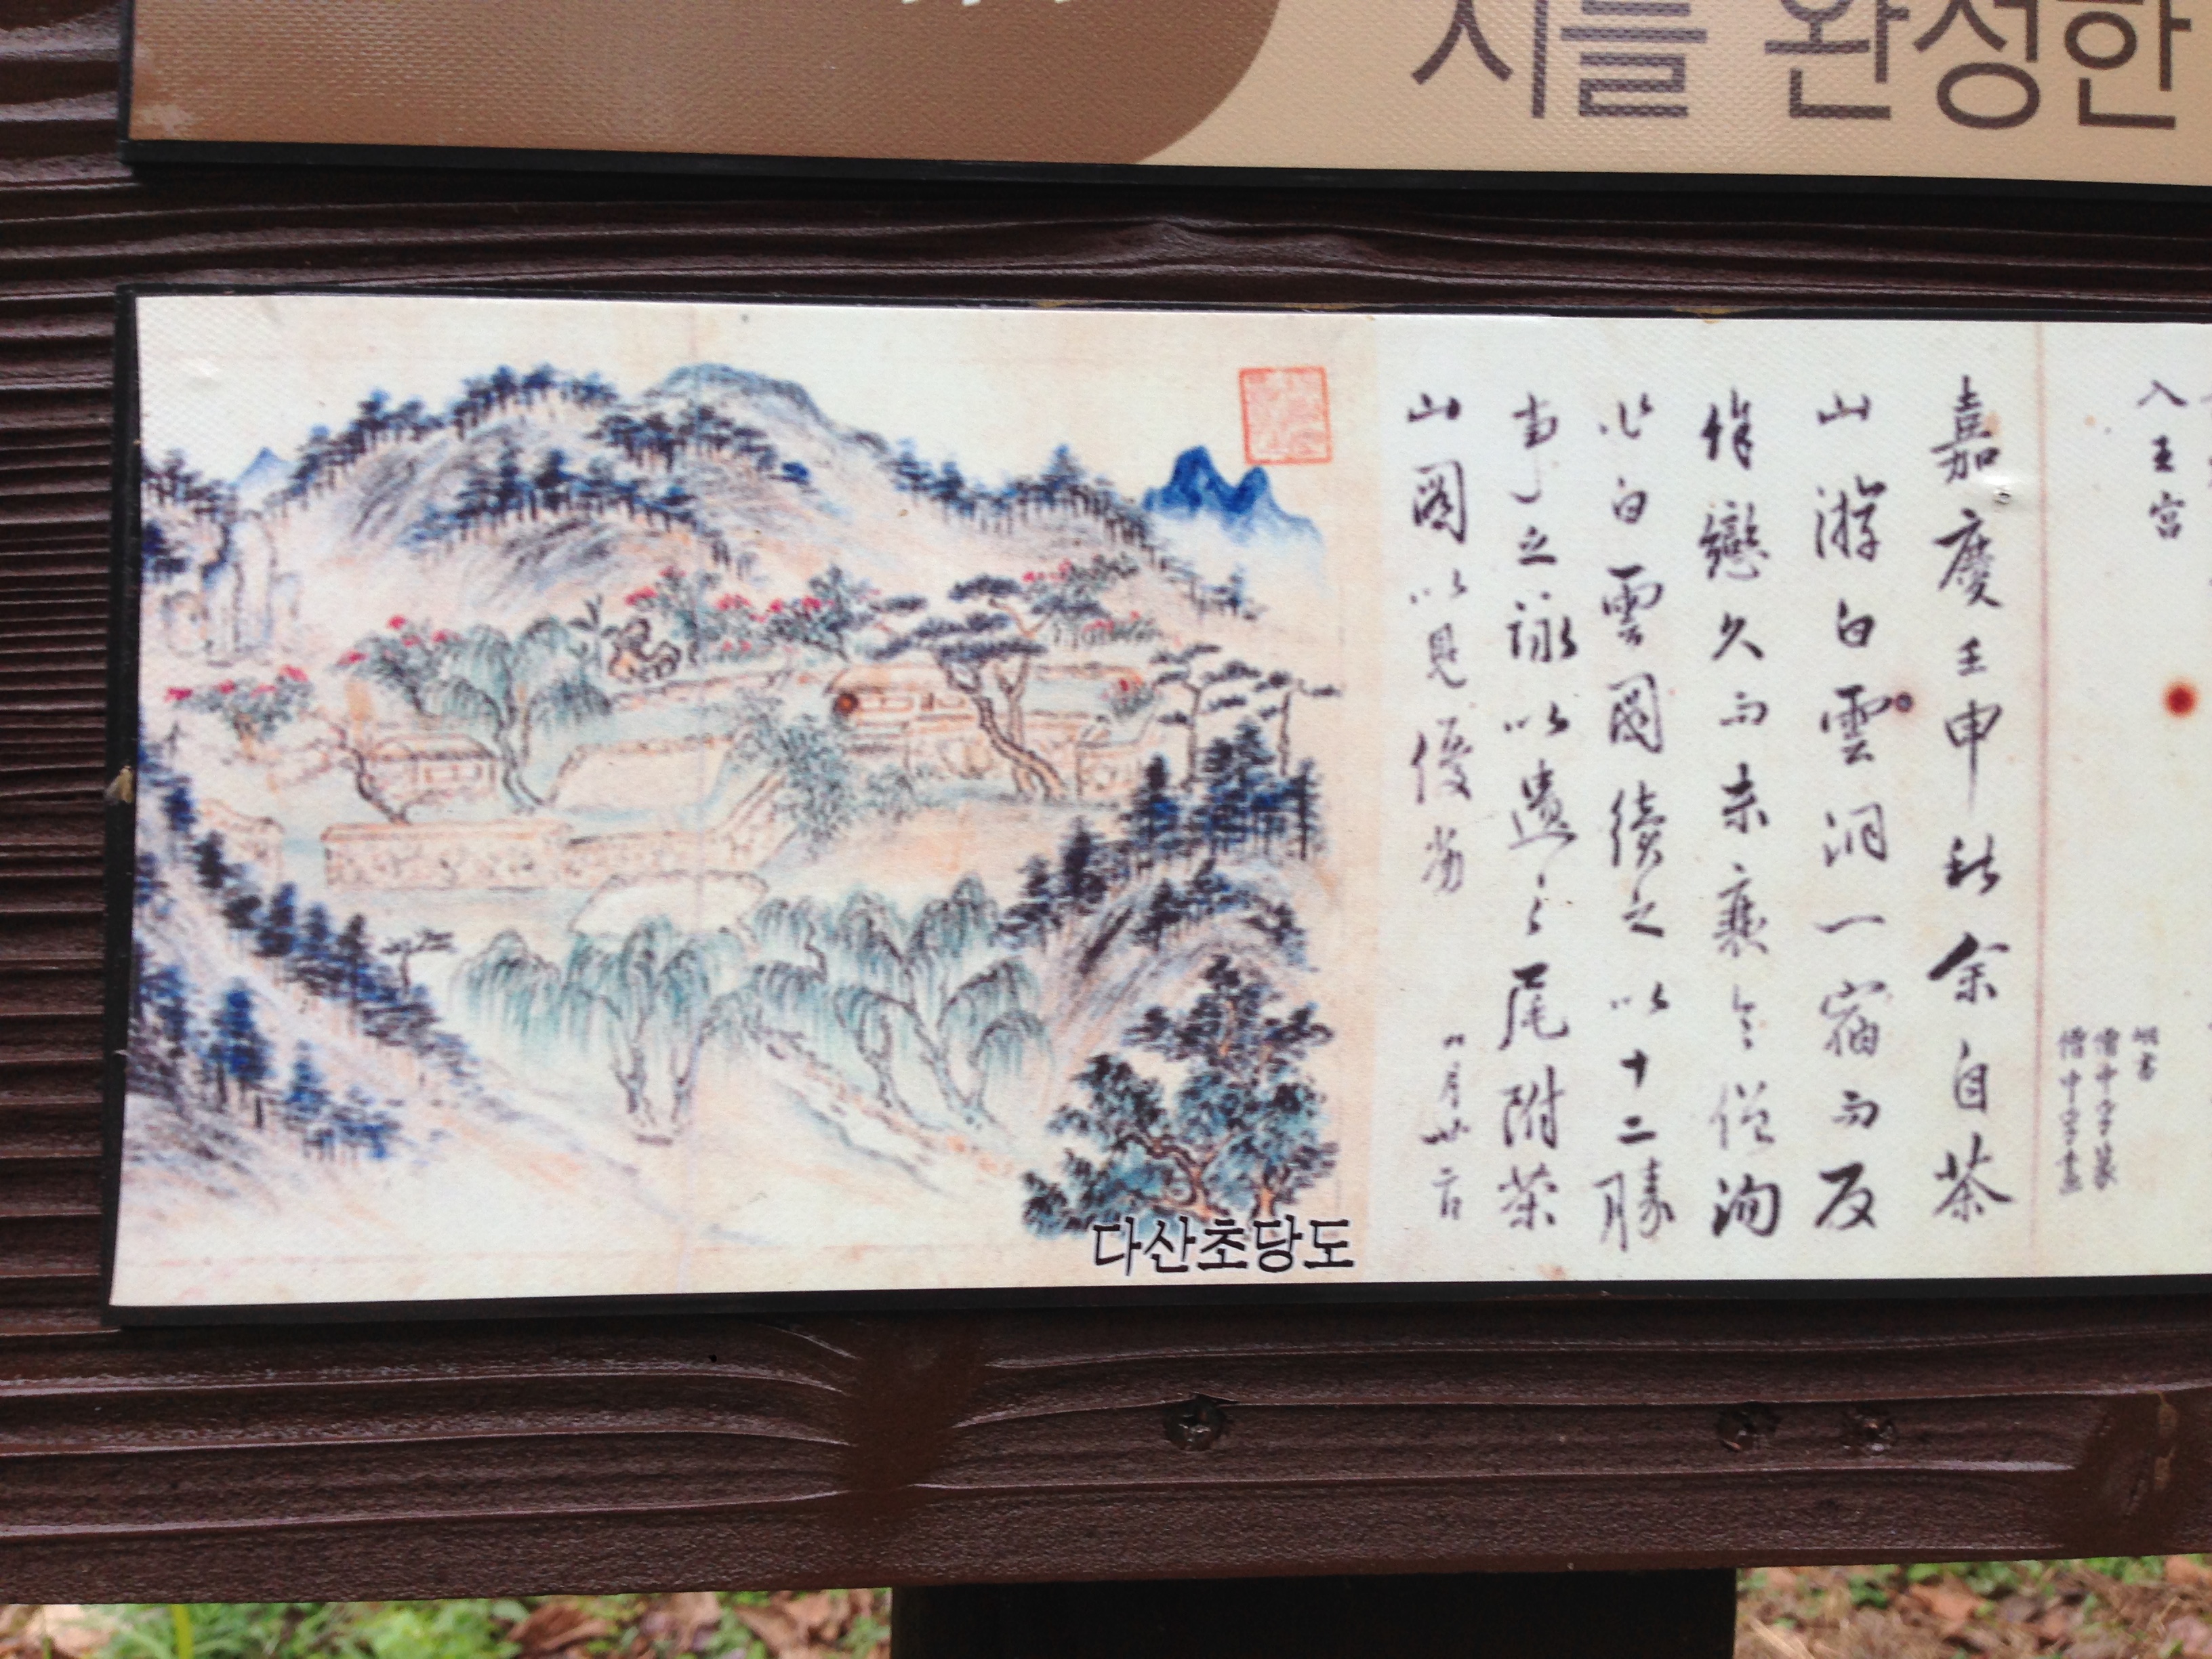 시를 완성한
入王宮
嘉慶壬申秋余自茶
山游白雲洞一宿而反
餘戀久而未衰令僧洵
作白雲圖續之以十二勝
事之詠以遺之尾附茶
山圖以見優劣
다산초당도